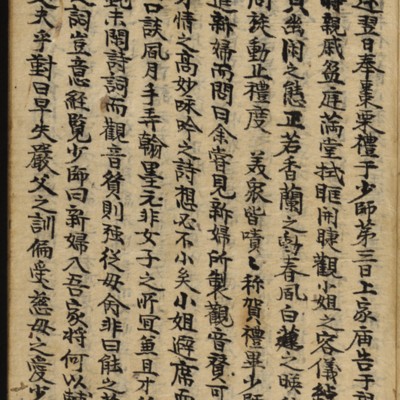 翌日奉棗栗禮于少師第三日上家庙告于
時親戚盈庭滿堂拭眶開睫觀小姐之容儀絕
幽閑之態正若香蘭之動春風白蓮之暎
周旋動止禮度 美衆皆嘖〻称賀禮畢少師
進新婦而問曰余嘗見新婦所製觀音賛可
才情之高妙咏吟之詩想必不小矣小姐避席而
口談風月手弄翰墨元非女子之所宜兼且才
此未閑詩詞而觀音賛則强從母命非曰能之
之詞豈意経覽少師曰新婦入吾家將何以
丈夫乎對曰早失嚴父之訓偏受慈母之愛少